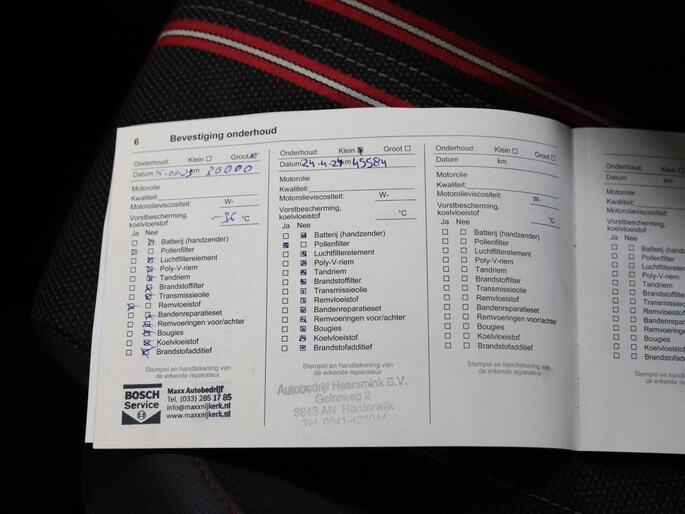 6 Bevestiging onderhoud
Onderhoud: Klein Groot
Datum km 30000
Motorolie
Kwaliteit:
Motorolieviscositeit: W-
Vorstbescherming,
koelvloeistof -36 °C
Ja Nee
Batterij (handzender)
Pollenfilter
Luchtfilterelement
Poly-V-riem
Tandriem
Brandstoffilter
Transmissieolie
Remvloeistof
Bandenreparatieset
Remvoeringen voor/achter
Bougies
Koelvloeistof
Brandstofadditief
Stempel en handtekening van
de erkende reparateur
BOSCH
Service
Maxx Autobedrijf
Tel. (033) 285 17 85
info@maxxnijkerk.nl
www.maxxnijkerk.nl
Onderhoud: Klein Groot
Datum 24-4-24 km 45584
Motorolie
Kwaliteit:
Motorolieviscositeit: W-
Vorstbescherming,
koelvloeistof °C
Ja Nee
Batterij (handzender)
Pollenfilter
Luchtfilterelement
Poly-V-riem
Tandriem
Brandstoffilter
Transmissieolie
Remvloeistof
Bandenreparatieset
Remvoeringen voor/achter
Bougies
Koelvloeistof
Brandstofadditief
Stempel en handtekening van
de erkende reparateur
Autobedrijf Heersmink B.V.
Gelreweg 2
3843 AN Harderwijk
Tel. 0341-422044
Onderhoud: Klein Groot
Datum km
Motorolie
Kwaliteit:
Motorolieviscositeit: W-
Vorstbescherming,
koelvloeistof °C
Ja Nee
Batterij (handzender)
Pollenfilter
Luchtfilterelement
Poly-V-riem
Tandriem
Brandstoffilter
Transmissieolie
Remvloeistof
Bandenreparatieset
Remvoeringen voor/achter
Bougies
Koelvloeistof
Brandstofadditief
Stempel en handtekening van
de erkende reparateur
Onderhoud: Klein
Datum km
Motorolie
Kwaliteit:
Motorolieviscositeit:
Vorstbescherming,
koelvloeistof
Ja Nee
Batterij (handzender)
Pollenfilter
Luchtfilterelement
Poly-V-riem
Tandriem
Brandstoffilter
Transmissieolie
Remvloeistof
Bandenreparatieset
Remvoeringen
Bougies
Koelvloeistof
Brandstofadditief
Stempel en
de erkende